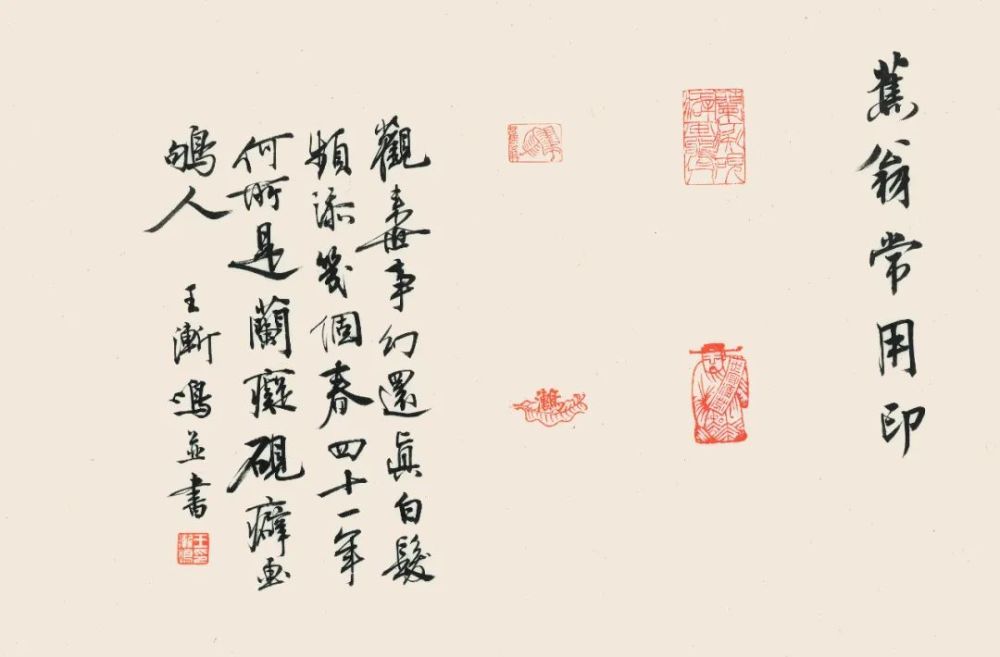 蕉翁常用印
觀来世事幻還眞白髮
頻添幾個春四十一年
何所是蘭癡硯癖画
人
王漸鳴並書